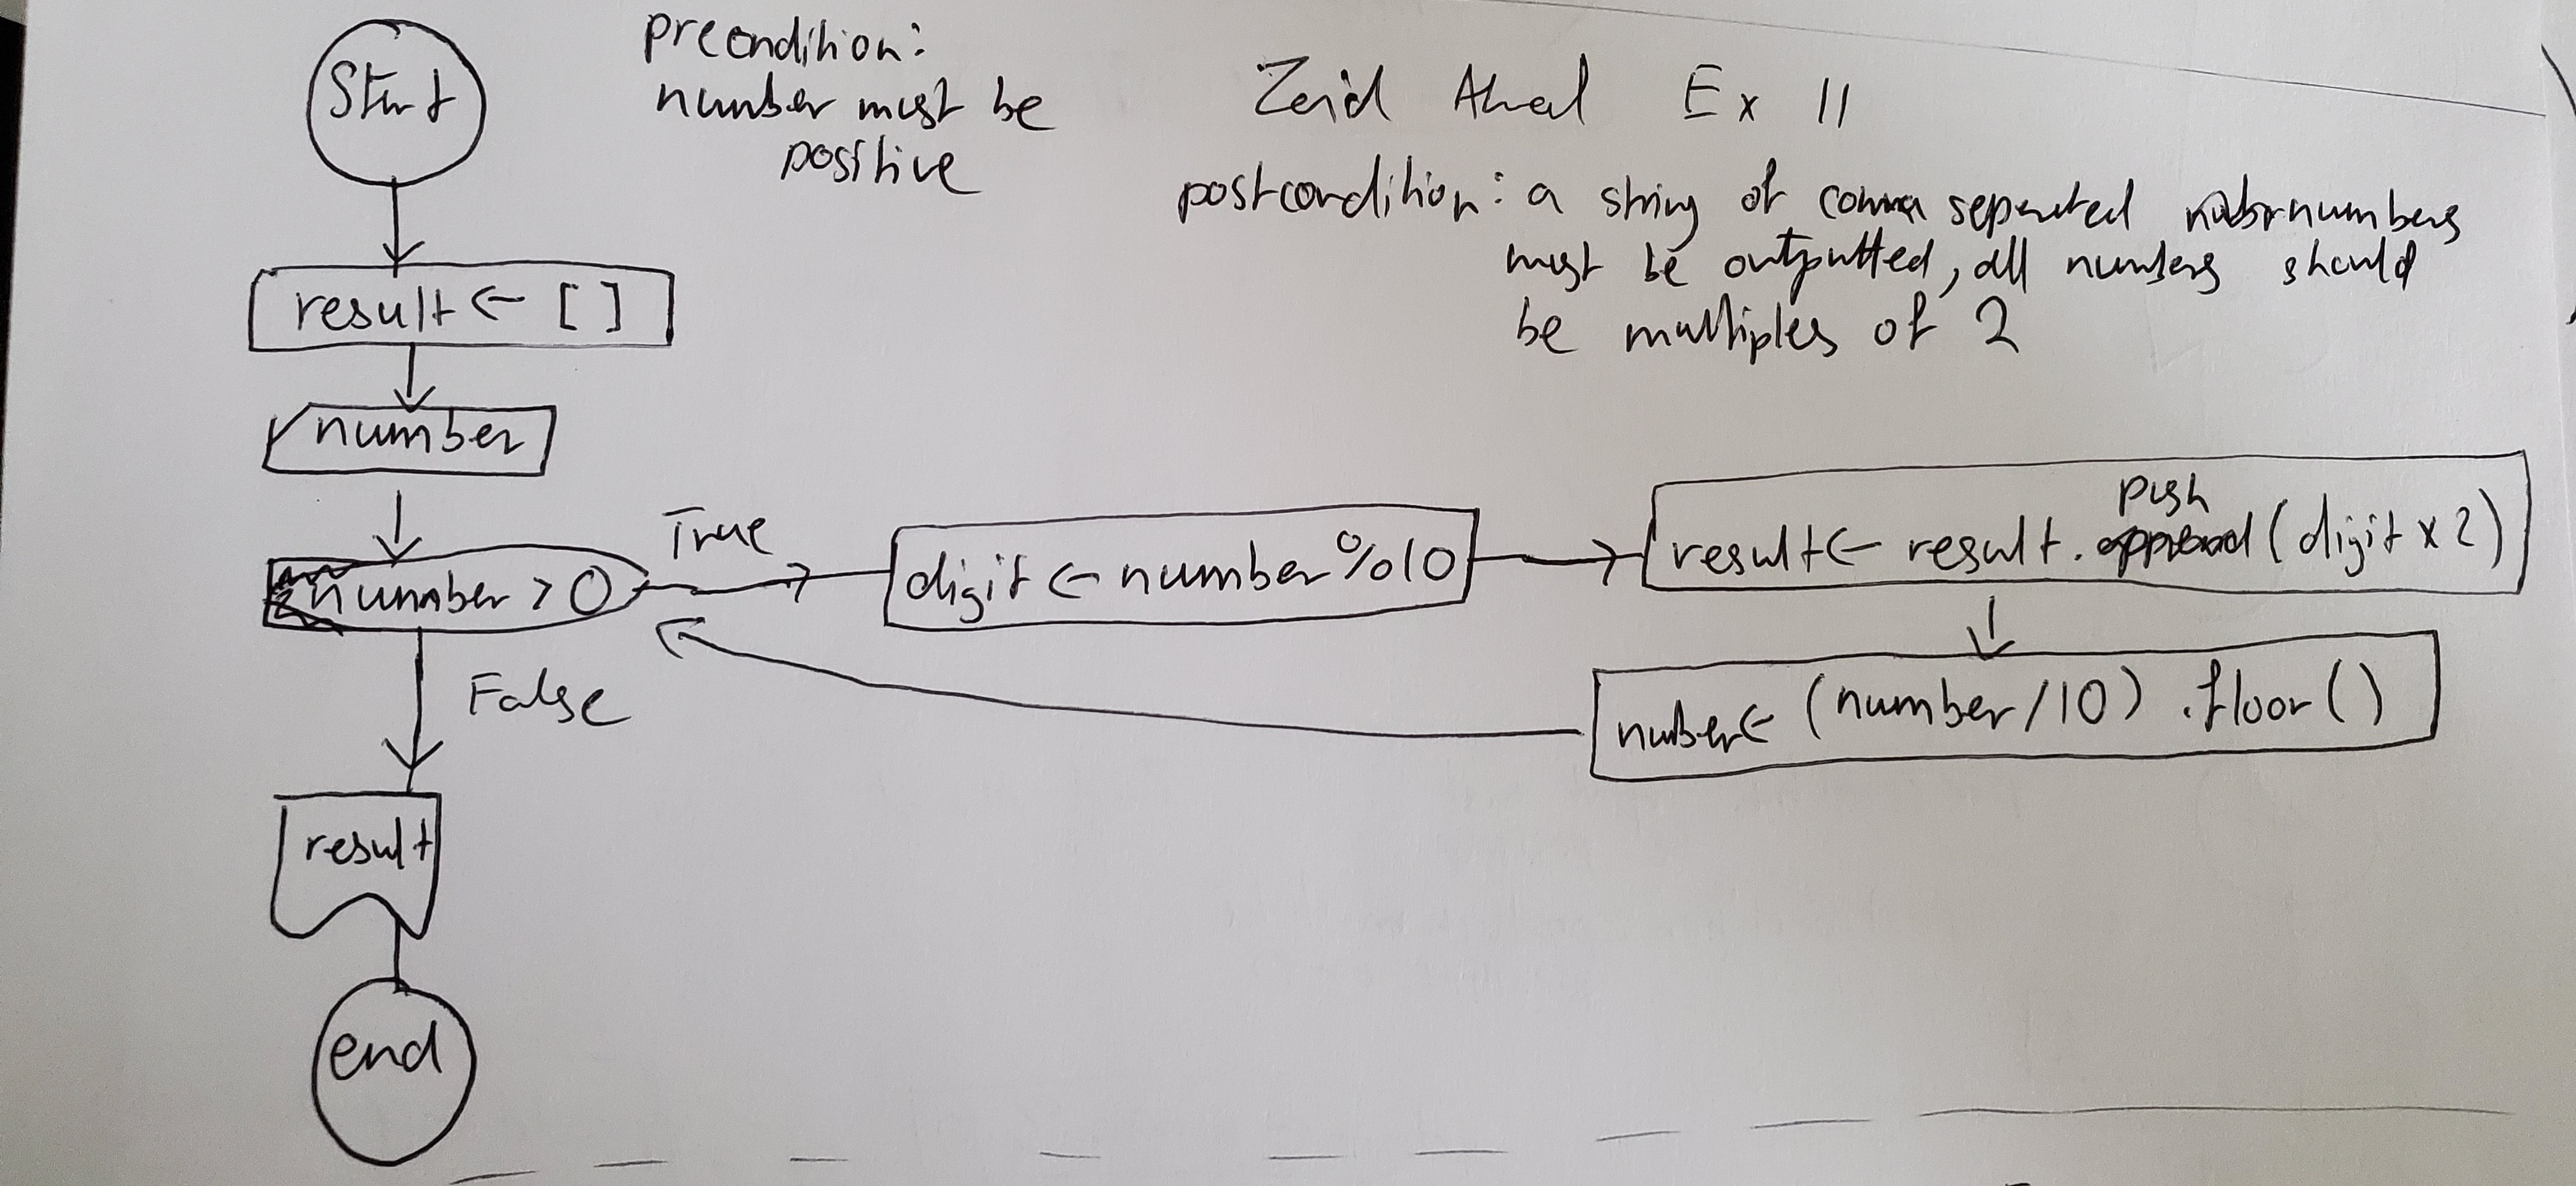 Start
precondition:
number must be
positive
Zeid Ex 11
postcondition: a string of comma seperated numbers
must be outputted, all numbers should
be multiples of 2
result ← [ ]
number
number > 0
True
digit ← number % 10
push
result ← result. append (digit x 2)
number ← (number / 10) .floor ( )
False
result
end